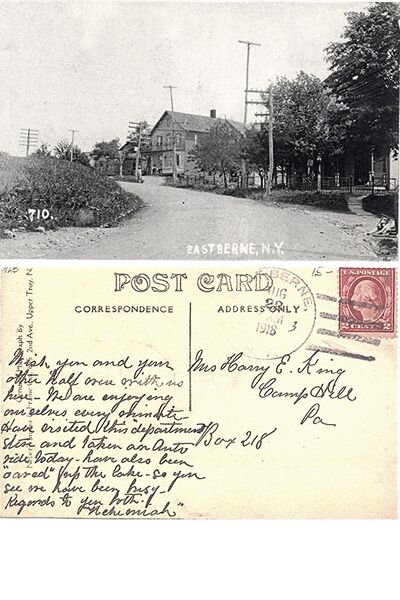 710.
EAST BERNE, N.Y.
POST CARD
CORRESPONDENCE
ADDRESS ONLY
BERNE
AUG
28
AM
1918
3
15-
U.S. POSTAGE
2 CENTS 2
2nd Ave. Upper Troy, N
Wish you and your
other half were with us
here. We are enjoying
ourselves every minute-
Have visited this department
store and taken an Auto
ride today- have also been
"oared" up the lake- so you
see we have been busy-
Regards to you both.
"Nehemiah"
Mrs Harry E. King
Camp Hill
Pa
Box 218